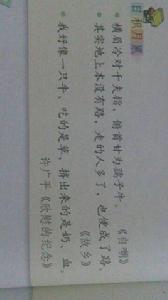 日积月累
横眉冷对千夫指，俯首甘为孺子牛。
《自嘲》
其实地上本没有路，走的人多了，也便成了路。
《故乡》
我好像一只牛，吃的是草，挤出来的是奶、血。
许广平《欣慰的纪念》